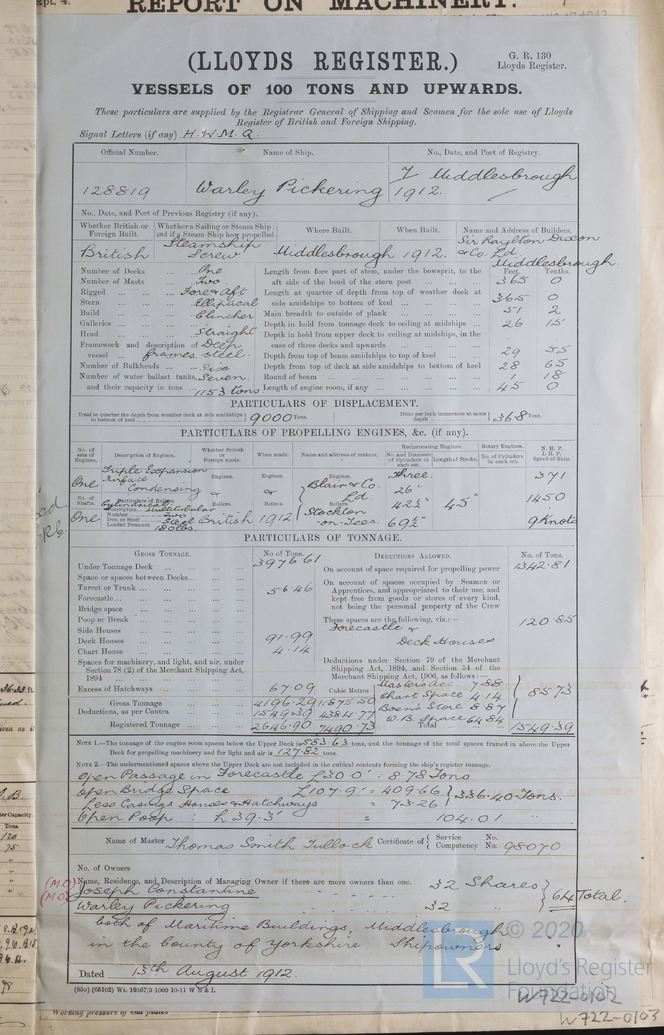 Rpt. 4.
REPORT ON MACHINERY.
(LLOYDS REGISTER.)
G. R. 130
Lloyds Register.
VESSELS OF 100 TONS AND UPWARDS.
These particulars are supplied by the Registrar General of Shipping and Seamen for the sole use of Lloyds
Register of British and Foreign Shipping.
Signal Letters (if any) H.W.M.Q.
Official Number. Name of Ship. No., Date, and Port of Registry.
128819 Warley Pickering 7 Middlesbrough
1912.
No., Date, and Port of Previous Registry (if any).
Whether British or Foreign Built. Whether a Sailing or Steam Ship; and if a Steam Ship how propelled. Where Built. When Built. Name and Address of Builders.
British Steamship Screw Middlesbrough 1912. Sir Raylton Dixon & Co. Ld Middlesbrough.
Feet. Tenths.
Number of Decks One Length from fore part of stem, under the bowsprit, to the
Number of Masts Two aft side of the head of the stern post 365 0
Rigged Fore & Aft Length at quarter of depth from top of weather deck at
Stern Elliptical side amidships to bottom of keel 365 0
Build Clincher Main breadth to outside of plank 51 2
Galleries Depth in hold from tonnage deck to ceiling at midships 26 15
Head Straight Depth in hold from upper deck to ceiling at midships, in the
Framework and description of Deep case of three decks and upwards
vessel frames. steel. Depth from top of beam amidships to top of keel 29 55
Number of Bulkheads Six Depth from top of deck at side amidships to bottom of keel 28 65
Number of water ballast tanks, Seven Round of beam 1 18
and their capacity in tons 1153 tons Length of engine room, if any 45 0
PARTICULARS OF DISPLACEMENT.
Total to quarter the depth from weather deck at side amidships to bottom of keel 9000 Tons. Ditto per inch immersion at same depth 36.8 Tons.
PARTICULARS OF PROPELLING ENGINES, &c. (if any).
No. of sets of Engines. Description of Engines. Whether British or Foreign made. When made. Name and address of makers. Reciprocating Engines. Rotary Engines. N. H. P. I. H. P. Speed of Ship.
No. and Diameter of Cylinders in each set. Length of Stroke. No. of Cylinders in each set.
One Triple Expansion Surface Condensing Engines. or Engines. or Engines. Blair & Co. Ld. Three. 26" 371
No. of Shafts. Particulars of Boilers. Boilers. Boilers. Boilers. 42½" 45" 1450
Description Cylindrical Multitubular
Number Two
Iron or Steel Steel
Loaded Pressure 180 lbs.
One British 1912 Stockton-on-Tees. 69½" 9 Knots
PARTICULARS OF TONNAGE.
GROSS TONNAGE. No of Tons. DEDUCTIONS ALLOWED. No. of Tons.
Under Tonnage Deck 3976 61 On account of space required for propelling power 1342.81
Space or spaces between Decks
Turret or Trunk 56.46 On account of spaces occupied by Seamen or
Forecastle Apprentices, and appropriated to their use, and
Bridge space kept free from goods or stores of every kind,
not being the personal property of the Crew
Poop or Break These spaces are the following, viz.:— 120.85
Side Houses Forecastle &
Deck Houses 91.99 Deck Houses
Chart House 4.14
Spaces for machinery, and light, and air, under Deductions under Section 79 of the Merchant
Section 78 (2) of the Merchant Shipping Act, Shipping Act, 1894, and Section 54 of the
1894 Merchant Shipping Act, 1906, as follows:—
Excess of Hatchways 67.09 Cubic Metres Masters acc. 7.88
Gross Tonnage 4196.29 11875.50 Chart Space 4.14 85.73
Deductions, as per Contra 1549.39 4384.77 Bosn's Store 8.87
W.B. Space 64.84
Registered Tonnage 2646.90 7490.73 Total 1549.39
NOTE 1.—The tonnage of the engine room spaces below the Upper Deck is 583.63 tons, and the tonnage of the total spaces framed in above the Upper
Deck for propelling machinery and for light and air is 127.82 tons.
NOTE 2.—The undermentioned spaces above the Upper Deck are not included in the cubical contents forming the ship's register tonnage.
Open Passage in Forecastle L 30.0' = 8.78 Tons
Open Bridge Space L 107.9' = 409.66
Less Casings Houses & Hatchways = 73.26 336.40 Tons
Open Poop: L 39.3' = 104.01 "
Name of Master Thomas Smith Tullock Certificate of Service No.
Competency No. 98070
No. of Owners
(M.O) Name, Residence, and Description of Managing Owner if there are more owners than one.
(M.O) Joseph Constantine 32 Shares
Warley Pickering 32 " 64 Total.
both of Maritime Buildings, Middlesbrough
in the County of Yorkshire Shipowners
Dated 13th August 1912.
(83o) (65102) Wt. 19567/3 1000 10-11 W B & L
© 2020
Lloyd's Register
Foundation
LR
W722-0102
W722-0103
Working pressure of end plates